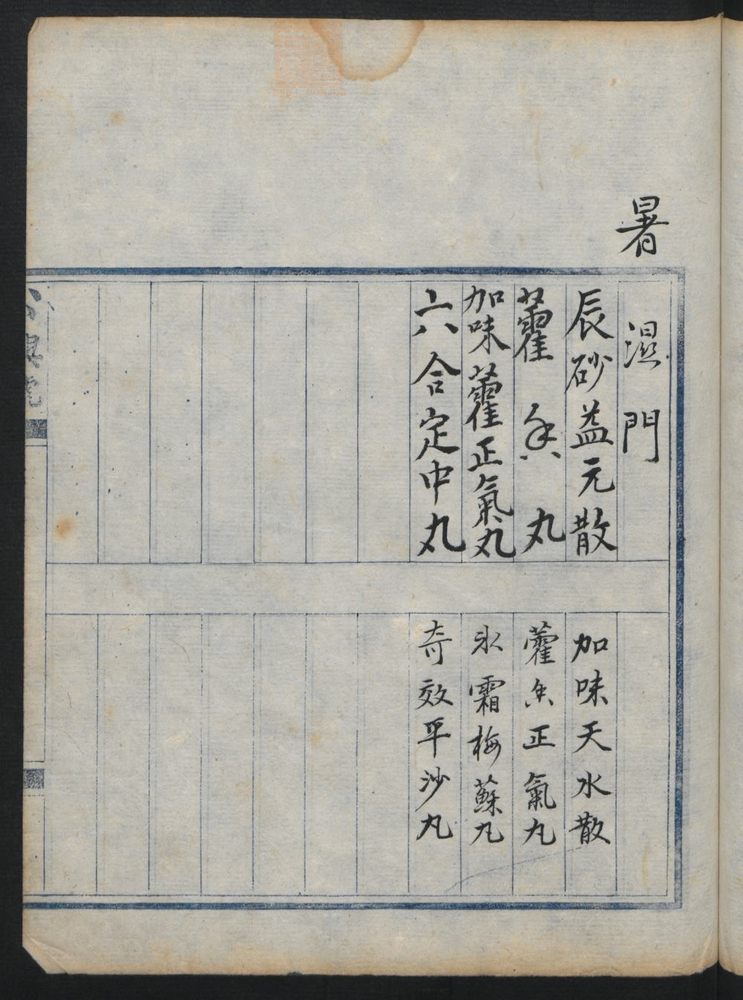 暑
濕門
辰砂益元散
藿香丸
加味藿正氣丸
六合定中丸
加味天水散
藿香正氣丸
氷霜梅蘇丸
奇效平沙丸